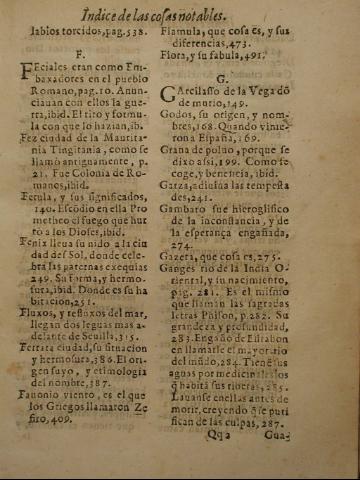 Indice de las cosas notables.
labios torcidos, pag. 538.
F.
FEciales eran como Em-
baxadores en el pueblo
Romano, pag. 10. Anun-
ciauan con ellos la gue-
rra, ibid. El rito y formu-
la con que lo hazian, ib.
Fez ciudad de la Maurita-
nia Tingitania, como se
llamó antiguamente, p.
21. Fue Colonia de Ro-
manos, ibid.
Ferula, y sus significados,
140. Escōdio en ella Pro
metheo el fuego que hur
tò a los Dioses, ibid.
Fenix lleua su nido a la ciu
dad del Sol, donde cele-
bra las paternas exequias
249. Su forma, y hermo-
sura, ibid. Donde es su ha
bitacion, 251.
Fluxos, y refluxos del mar,
llegan dos leguas mas a-
delante de Seuilla, 315.
Ferrara ciudad, su situacion
y hermosura, 386. El ori-
gen suyo, y etimologia
del nombre, 387.
Fauonio viento, es el que
los Griegos llamaron Ze
firo, 409.
Flamula, que cosa es, y sus
diferencias, 473.
Flora, y su fabula, 491.
G.
GArcilasso de la Vega dō
de murio, 149.
Godos, su origen, y nom-
bres, 168. Quando vinie-
ron a España, 169.
Grana de poluo, porque se
dixo assi, 199. Como se
coge, y beneficia, ibid.
Garza, adiuina las tempesta
des, 241.
Gambaro fue hieroglifico
de la inconstancia, y de
la esperança engañada,
274.
Gazeta, que cosa es, 275.
Ganges rio de la India O-
riental, y su nacimiento,
pag. 281. Es el mismo
que llaman las sagradas
letras Phison, p. 282. Su
grandeza y profundidad,
283. Engaño de Estrabon
en llamarle el mayor rio
del mūdo, 284. Tiene sus
aguas por medicinales los
q̄ habitā sus riberas, 285.
Lauanse en ellas antes de
morir, creyendo q̄ se puri
fican de las culpas, 287.
Qq 2 Gua-